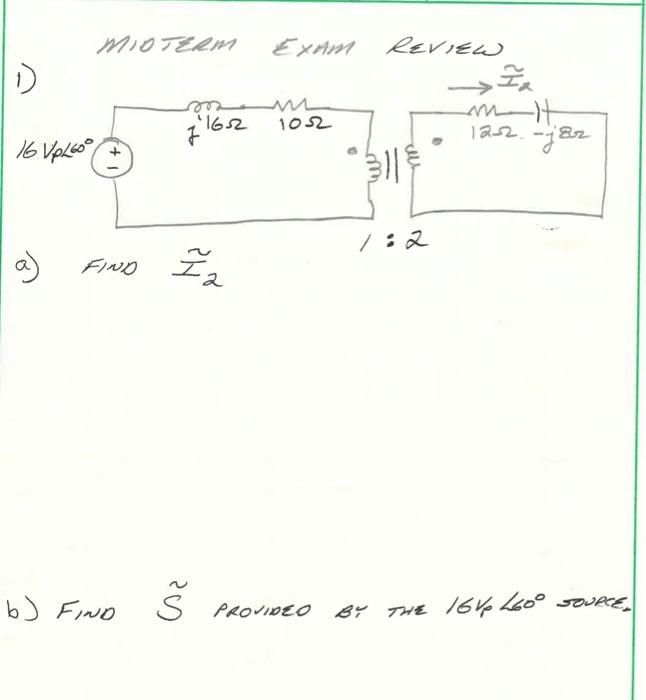 MIDTERM EXAM REVIEW
1)
Ĩ₂
j16Ω 10Ω
12Ω -j8Ω
16 Vp∠60°
+
-
1 : 2
a) FIND Ĩ₂
b) FIND S̃ PROVIDED BY THE 16Vp∠60° SOURCE.